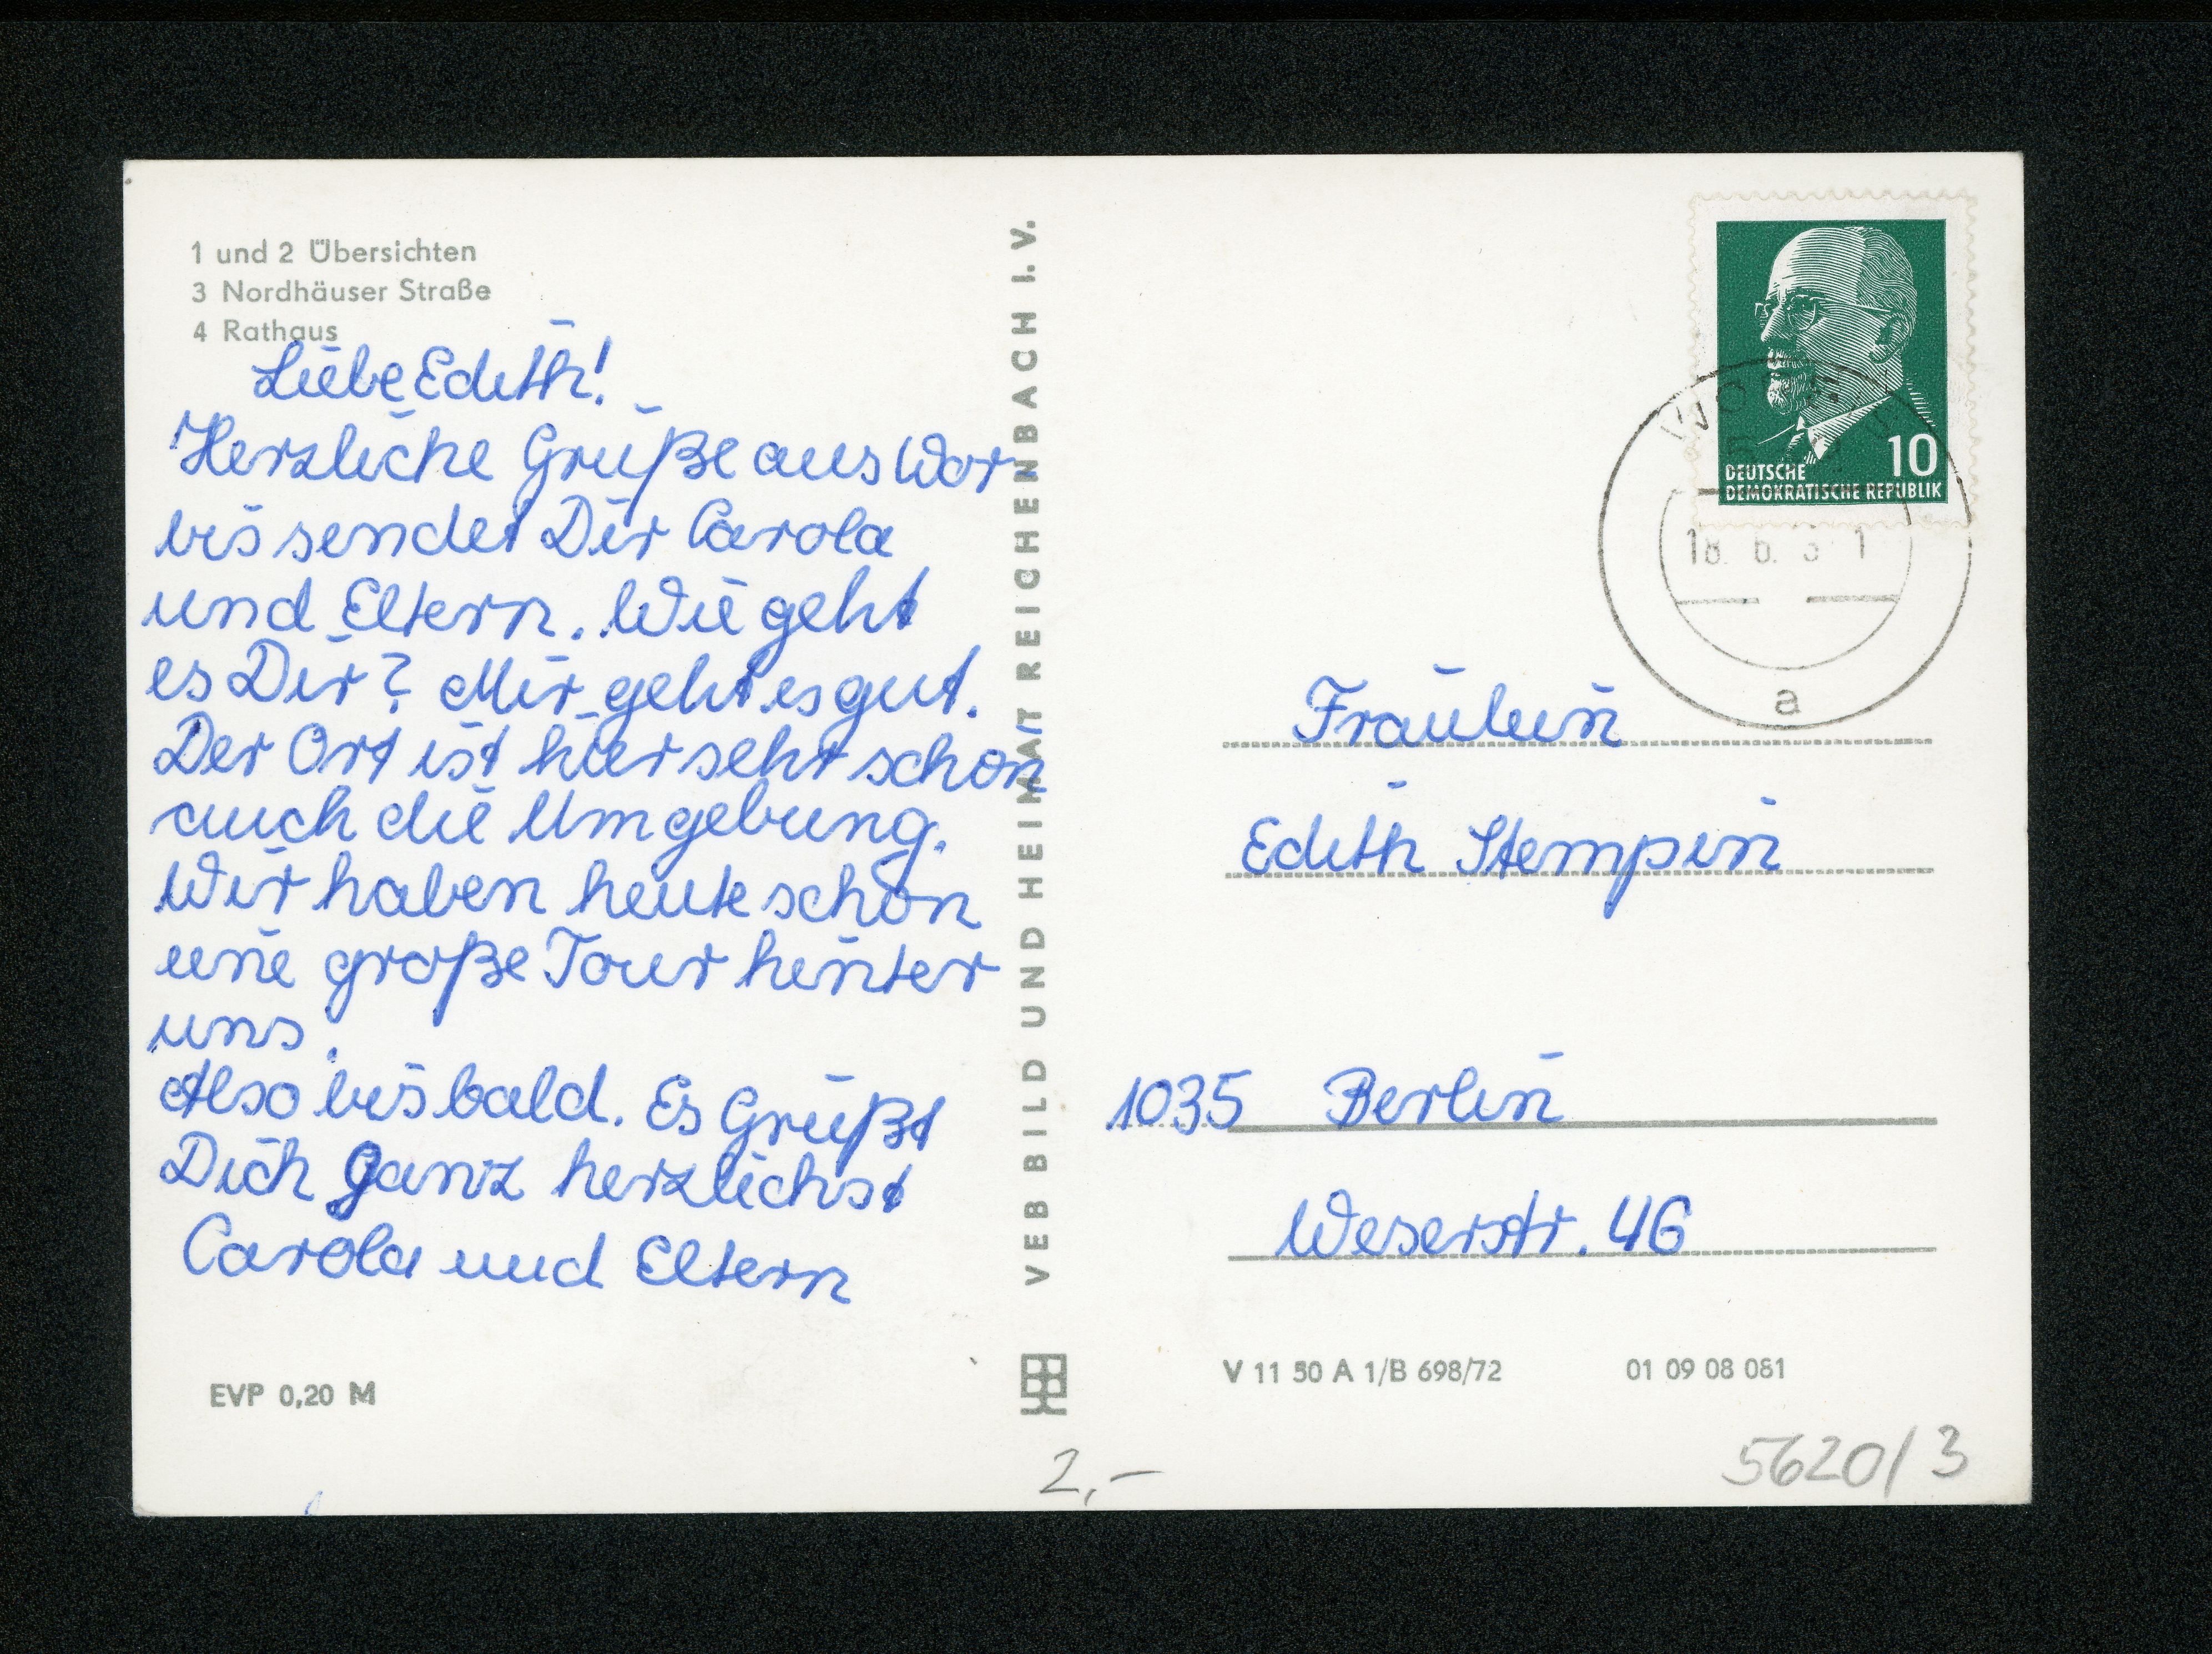 1 und 2 Übersichten
3 Nordhäuser Straße
4 Rathaus
Liebe Edith!
Herzliche Grüße aus Wor-
bis sendet Dir Carola
und Eltern. Wie geht
es Dir? Mir geht es gut.
Der Ort ist hier sehr schön
auch die Umgebung.
Wir haben heute schon
eine große Tour hinter
uns.
Also bis bald. Es Grüßt
Dich ganz herzlichst
Carola und Eltern
EVP 0,20 M
VEB BILD UND HEIMAT REICHENBACH I. V.
10
DEUTSCHE
DEMOKRATISCHE REPUBLIK
a
Fräulein
Edith Stempin
1035 Berlin
Weserstr. 46
V 11 50 A 1/B 698/72 01 09 08 081
2,-
5620/3